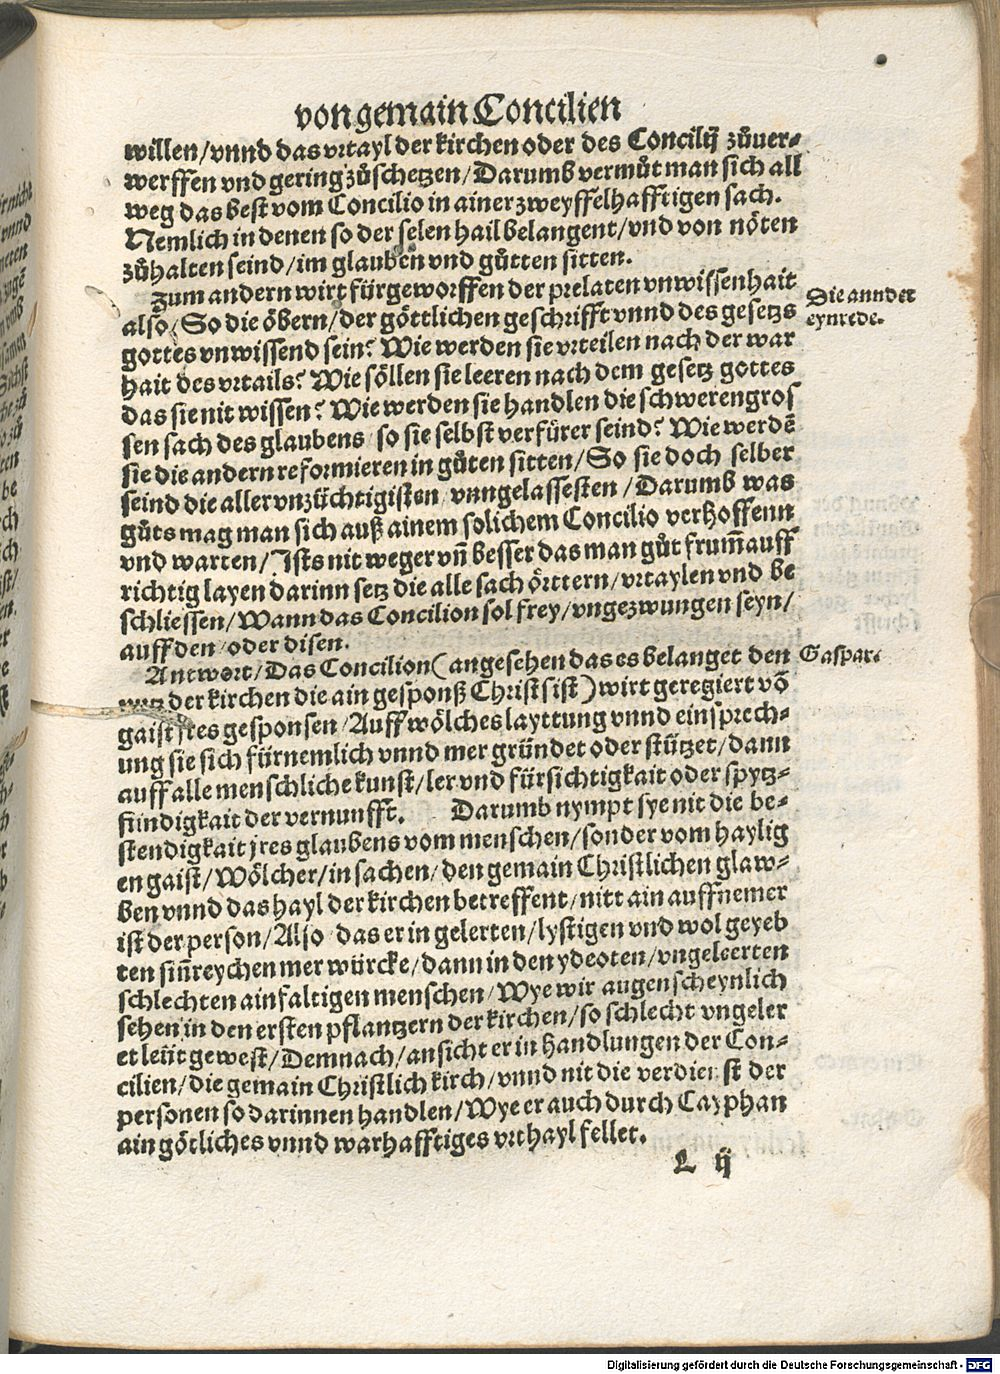 von gemain Concilien
willen/vnnd das vrtayl der kirchen oder des Concilij zůuer⸗
werffen vnd gering zůschetzen/Darumb vermůt man sich all
weg das best vom Concilio in ainer zweyffelhafftigen sach.
Nemlich in denen so der selen hail belangent/vnd von nöten
zůhalten seind/im glauben vnd gůtten sitten.
Zum andern wirt fürgeworffen der prelaten vnwissenhait
Die annder
also/So die öbern/der göttlichen geschrifft vnnd des gesetzs
eynrede.
gottes vnwissend sein? Wie werden sie vrteilen nach der war
hait des vrtails? Wie söllen sie leeren nach dem gesetz gottes
das sie nit wissen? Wie werden sie handlen die schweren gros
sen sach des glaubens/so sie selbst verfürer seind? Wie werdē
sie die andern reformieren in gůten sitten/So sie doch selber
seind die aller vnzüchtigisten/vnngelassesten/Darumb was
gůts mag man sich auß ainem solichem Concilio verhoffenn
vnd warten/Ists nit weger vñ besser das man gůt frum̃ auff
richtig layen darinn setz die alle sach örttern/vrtaylen vnd be
schliessen/Wann das Concilion sol frey/vngezwungen seyn/
auff den/oder disen.
Antwort/Das Concilion(angesehen das es belanget den
Gaspar.
nutz der kirchen die ain gesponß Christs ist)wirt geregiert võ
gaist jres gesponsen/Auff wölches layttung vnnd einsprech⸗
ung sie sich fürnemlich vnnd mer gründet oder stützet/dann
auff alle menschliche kunst/ler vnd fürsichtigkait oder spytz⸗
findigkait der vernunfft. Darumb nympt sye nit die be⸗
stendigkait jres glaubens vom menschen/sonder vom haylig
en gaist/Wölcher/in sachen/den gemain Christlichen glaw⸗
ben vnnd das hayl der kirchen betreffent/nitt ain auffnemer
ist der person/Also das er in gelerten/lystigen vnd wol geyeb
ten siñreychen mer würcke/dann in den ydeoten/vngeleerten
schlechten ainfaltigen menschen/Wye wir augenscheynlich
sehen in den ersten pflantzern der kirchen/so schlecht vngeler
et leüt gewest/Demnach/ansicht er in handlungen der Con⸗
cilien/die gemain Christlich kirch/vnnd nit die verdienst der
personen so darinnen handlen/Wye er auch durch Cayphan
ain götliches vnnd warhafftiges vrthayl fellet.
L ij
Digitalisierung gefördert durch die Deutsche Forschungsgemeinschaft - DFG